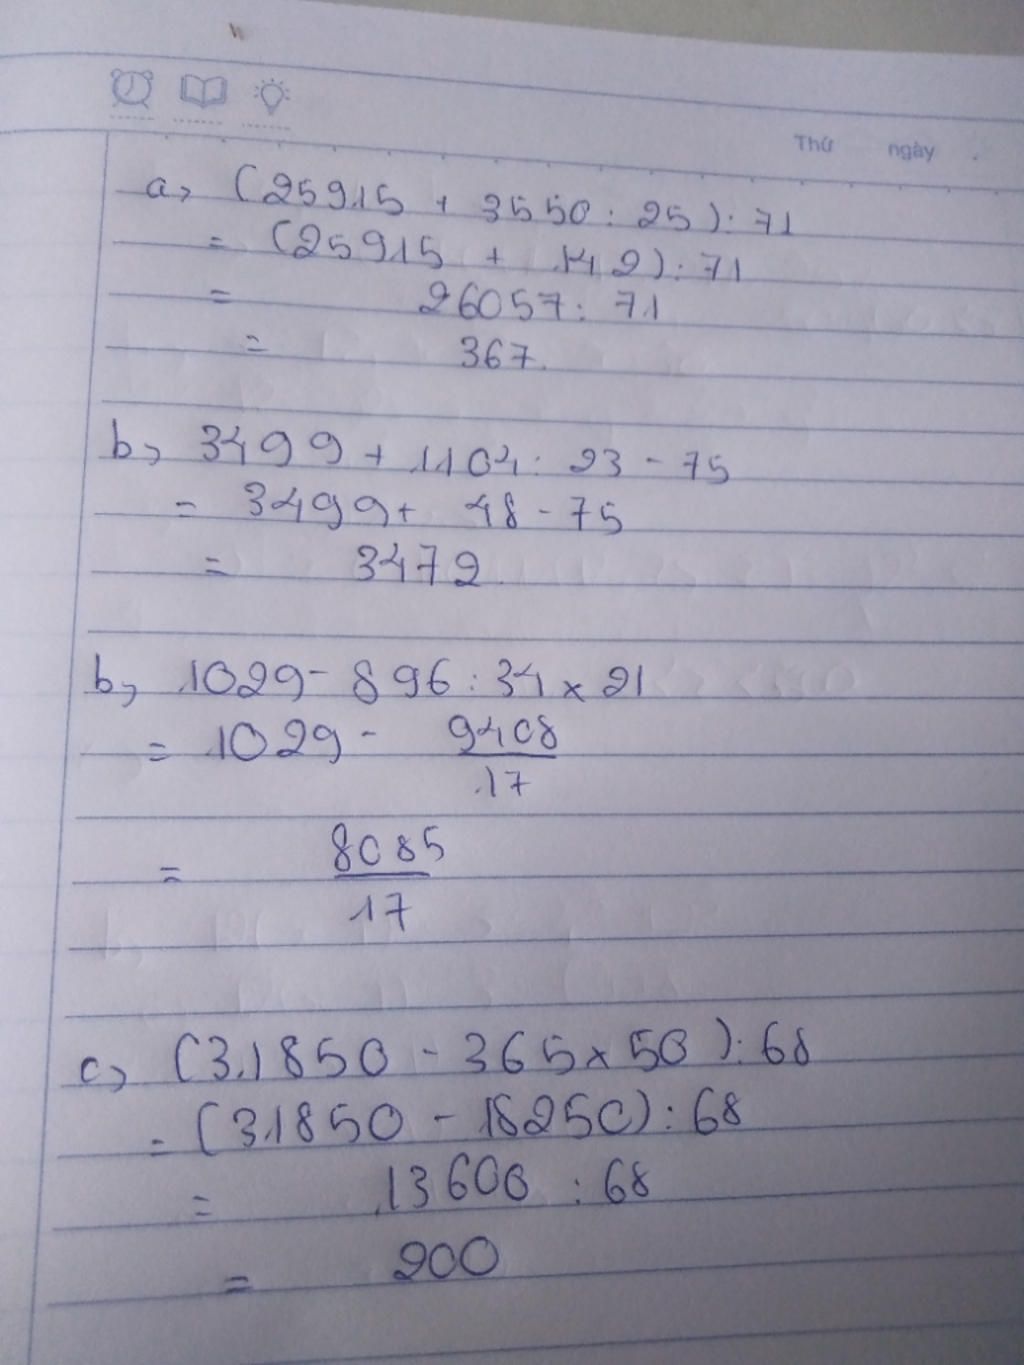 Thứ ngày .
a, (25915 + 3550 : 25) : 71
= (25915 + 142) : 71
= 26057 : 71
= 367.
b, 3499 + 1104 : 23 - 75
= 3499 + 48 - 75
= 3472
b, 1029 - 896 : 34 x 21
= 1029 - 9408
17
= 8085
17
c, (31850 - 365 x 50) : 68
= (31850 - 18250) : 68
= 13600 : 68
= 200